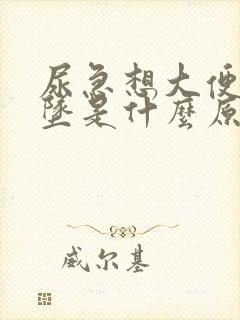 尿急想大便
墜是什麼原
威尔基